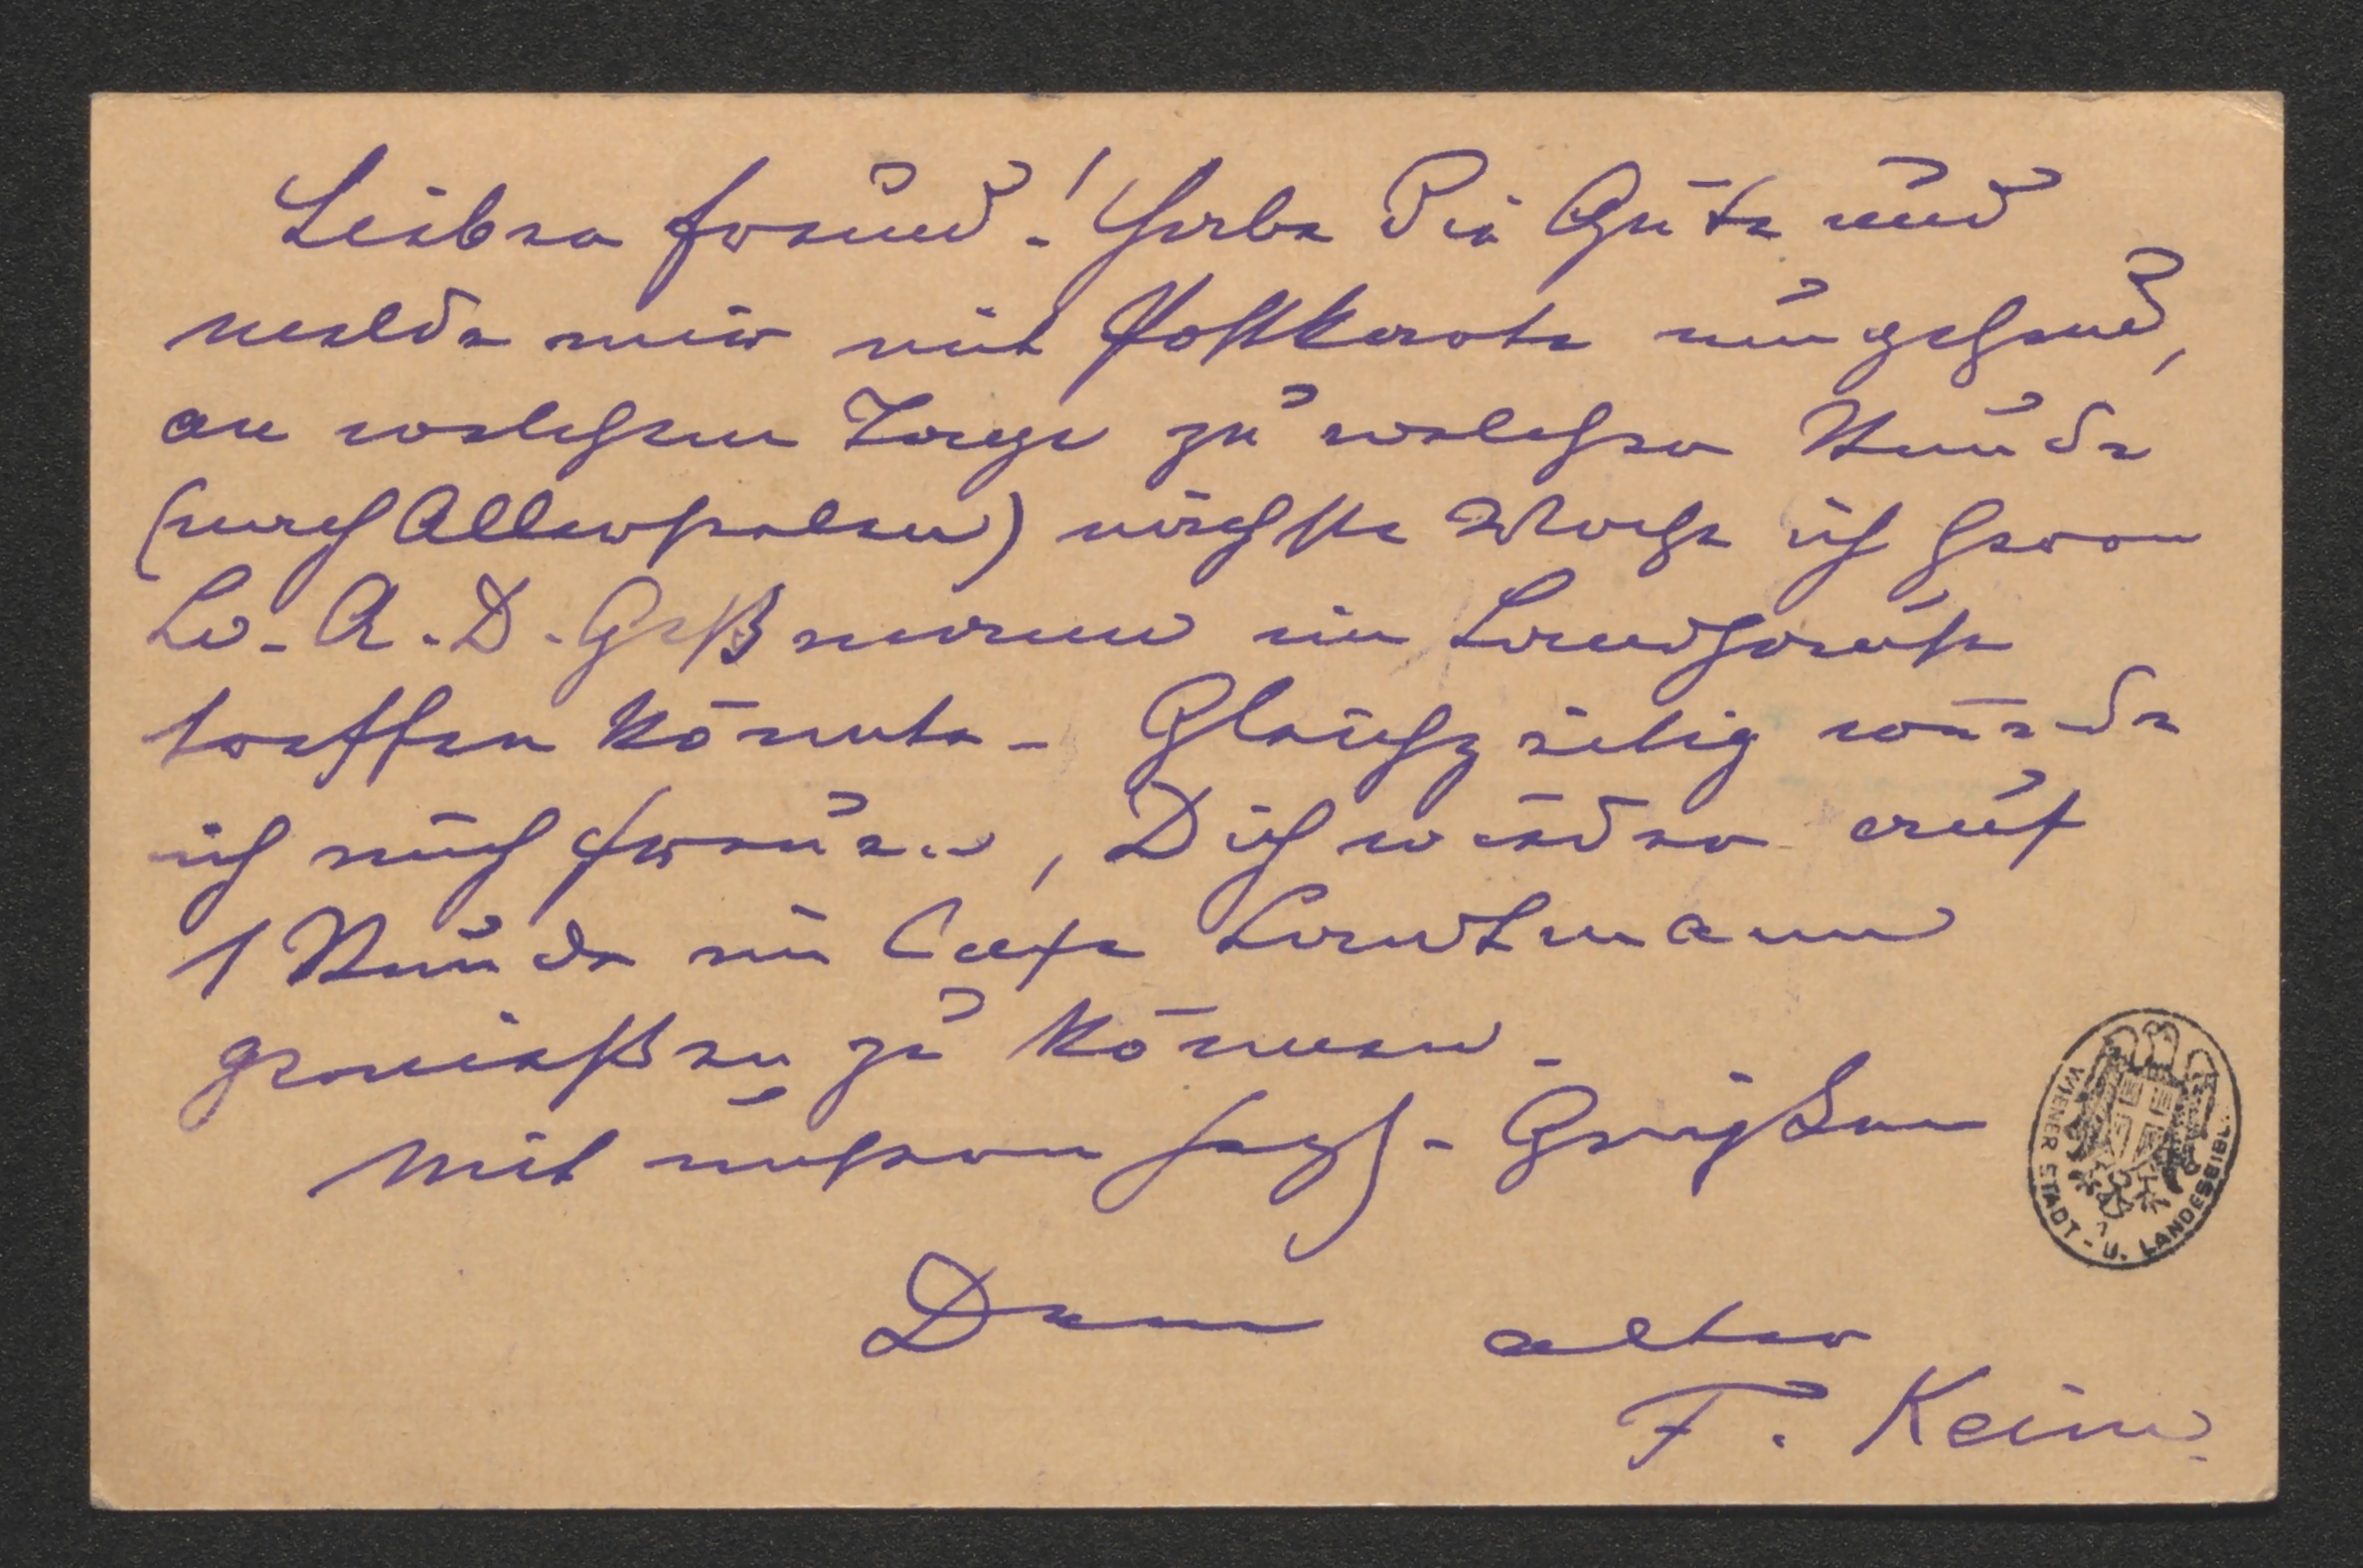 Lieber Freund! Habe die Güte und
melde mir mit Postkarte umgehend,
an welchem Tage zu welcher Stunde
(nach Allerseelen) nächste Woche ich Herrn
Dr. A. D. Geßmann im Landhause
treffen könnte. Gleichzeitig würde
ich mich freuen, Dich wieder auf
1 Stunde im Cafe Landtmann
genießen zu können.
Mit unsern herzl. Grüßen
Dein alter
F. Keim
WIENER STADT- U. LANDESBIBL.